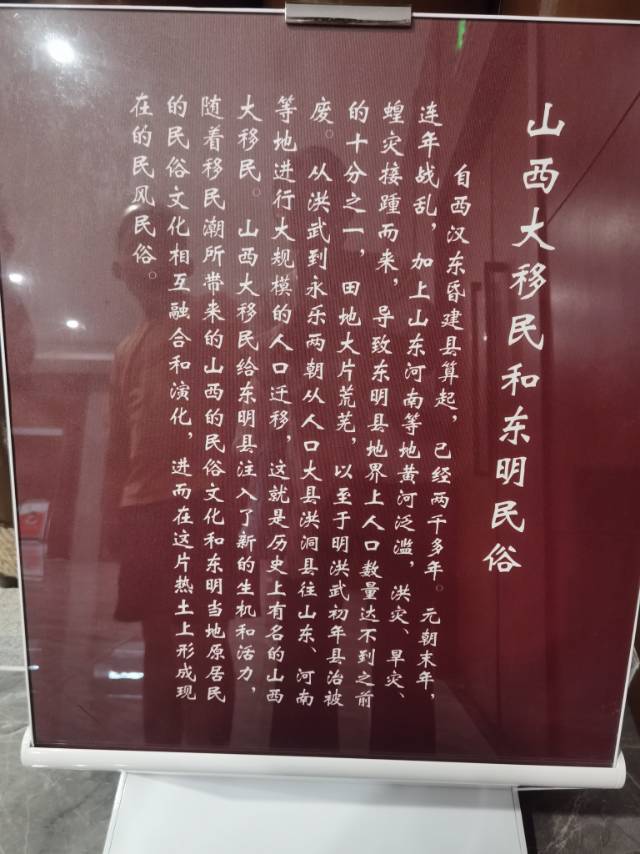 山西大移民和东明民俗
自西汉东昏建县算起，已经两千多年。元朝末年，
连年战乱，加上山东河南等地黄河泛滥，洪灾、旱灾、
蝗灾接踵而来，导致东明县地界上人口数量达不到之前
的十分之一，田地大片荒芜，以至于明洪武初年县治被
废。从洪武到永乐两朝从人口大县洪洞县往山东、河南
等地进行大规模的人口迁移，这就是历史上有名的山西
大移民。山西大移民给东明县注入了新的生机和活力，
随着移民潮所带来的山西的民俗文化和东明当地原居民
的民俗文化相互融合和演化，进而在这片热土上形成现
在的民风民俗。